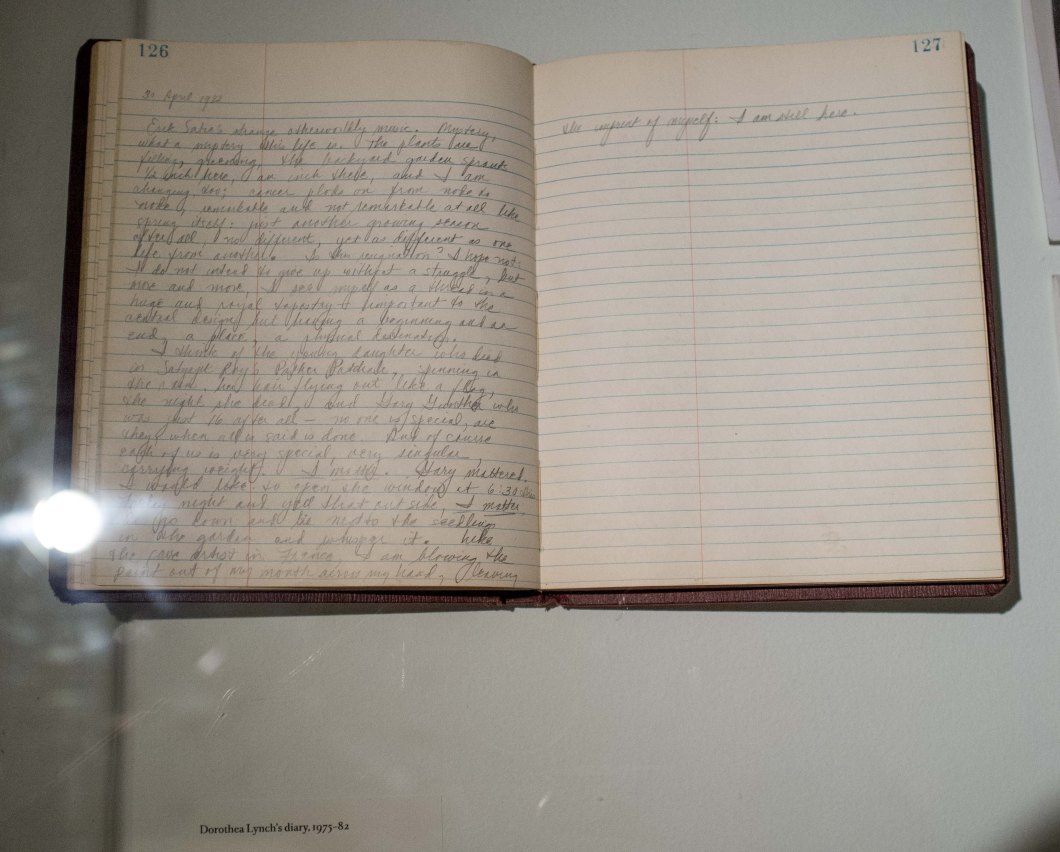 126
30 April 1982
Erik Satie's strange otherworldly music. Mystery,
what a mystery this life is. The plants are
filling, greening, the backyard garden sprouts
½ inch here, an inch there, and I am
changing too; cancer plods on from node to
node, remarkable and not remarkable at all like
spring itself: just another growing season
after all, no different, yet as different as one
life from another. Is this resignation? I hope not:
I do not intend to give up without a struggle, but
more and more, I see myself as a thread in a
huge and royal tapestry important to the
central design, but having a beginning and an
end, a place, a physical destination.
I think of the young daughter who died
in Satyajit Ray's Pather Panchali, spinning in
the rain, her hair flying out like a flag,
the night she died, and Gary who
was just 16 after all — no one is special, are
they, when all is said is done. And of course
each of us is very special, very singular,
carrying weight. I matter. Gary mattered.
I would like to open the window at 6:30 this
night and yell that out side, I matter
go down and lie next to the seedlings
in the garden and whisper it. Like
the cave artist in France I am blowing the
paint out of my mouth across my hand, leaving
127
the imprint of myself: I am still here.
Dorothea Lynch's diary, 1975–82